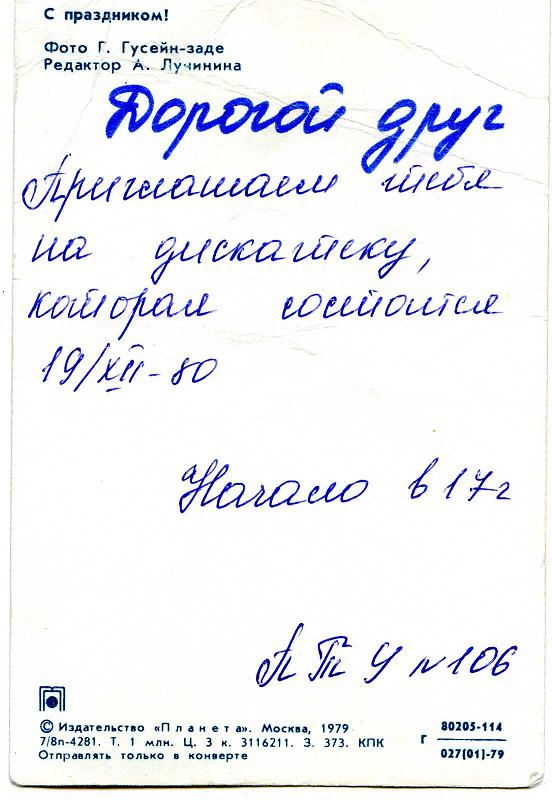 С праздником!
Фото Г. Гусейн-заде
Редактор А. Лучинина
Дорогой друг
Приглашаем тебя
на дискатеку,
которая состоится
19/XII-80
Начало в 17 г
П Т У N 106
© Издательство «Планета». Москва, 1979
7/8п-4281. Т. 1 млн. Ц. 3 к. 3116211. З. 373. КПК
Отправлять только в конверте
Г 80205-114
027(01)-79